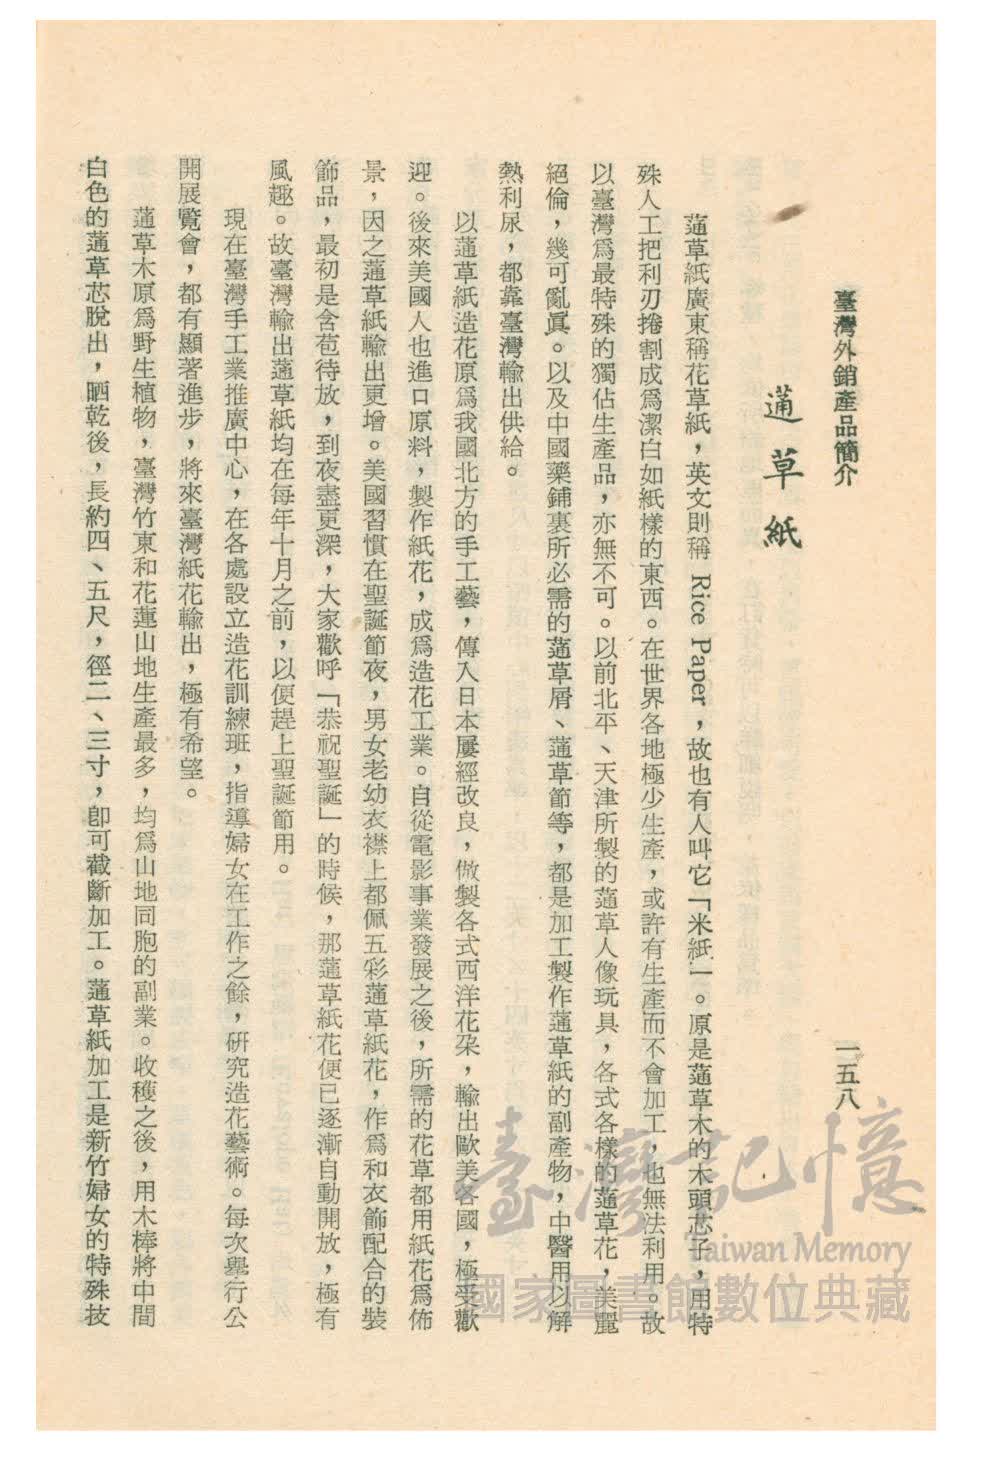 臺灣外銷產品簡介
一五八
蓪草紙
蓪草紙廣東稱花草紙，英文則稱 Rice Paper，故也有人叫它「米紙」。原是蓪草木的木頭芯子，用特
殊人工把利刃捲割成爲潔白如紙樣的東西。在世界各地極少生產，或許有生產而不會加工，也無法利用。故
以臺灣爲最特殊的獨佔生產品，亦無不可。以前北平、天津所製的蓪草人像玩具，各式各樣的蓪草花，美麗
絕倫，幾可亂眞。以及中國藥鋪裏所必需的蓪草屑、蓪草節等，都是加工製作蓪草紙的副產物，中醫用以解
熱利尿，都靠臺灣輸出供給。
以蓪草紙造花原爲我國北方的手工藝，傳入日本屢經改良，倣製各式西洋花朶，輸出歐美各國，極受歡
迎。後來美國人也進口原料，製作紙花，成爲造花工業。自從電影事業發展之後，所需的花草都用紙花爲佈
景，因之蓪草紙輸出更增。美國習慣在聖誕節夜，男女老幼衣襟上都佩五彩蓪草紙花，作爲和衣飾配合的裝
飾品，最初是含苞待放，到夜盡更深，大家歡呼「恭祝聖誕」的時候，那蓪草紙花便已逐漸自動開放，極有
風趣。故臺灣輸出蓪草紙均在每年十月之前，以便趕上聖誕節用。
現在臺灣手工業推廣中心，在各處設立造花訓練班，指導婦女在工作之餘，研究造花藝術。每次舉行公
開展覽會，都有顯著進步，將來臺灣紙花輸出，極有希望。
蓪草木原爲野生植物，臺灣竹東和花蓮山地生產最多，均爲山地同胞的副業。收穫之後，用木棒將中間
白色的蓪草芯脫出，晒乾後，長約四、五尺，徑二、三寸，卽可截斷加工。蓪草紙加工是新竹婦女的特殊技
臺灣記憶
Taiwan Memory
國家圖書館數位典藏